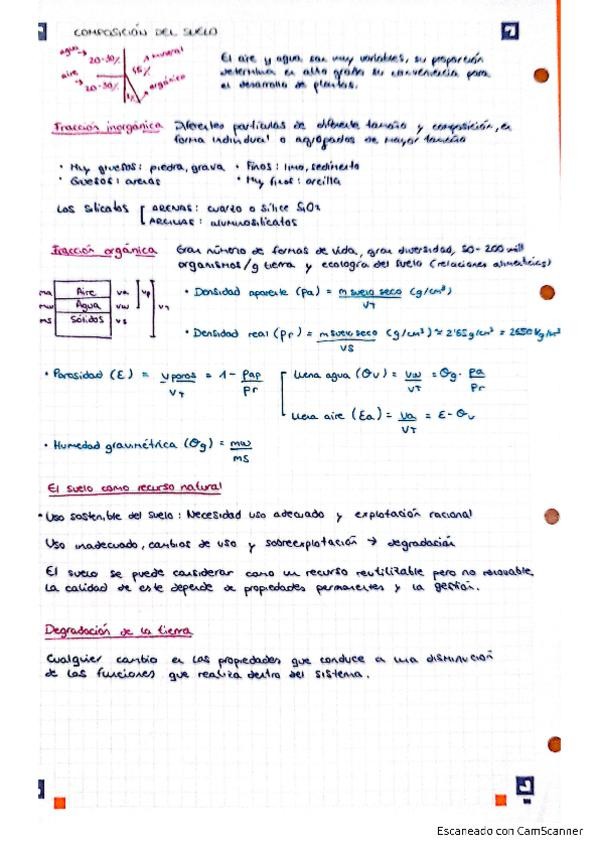 COMPOSICIÓN DEL SUELO
agua → 20-30%
mineral
45%
aire → 20-30%
orgánico
El aire y agua son muy variables, su proporción
determina en alto grado su conveniencia para
el desarrollo de plantas.
Fracción inorgánica Diferentes partículas de diferente tamaño y composición, en
forma individual o agrupados de mayor tamaño
· Muy gruesos: piedra, grava · Finos: limo, sedimento
· Gruesos: arenas · Muy finos: arcilla
Los silicatos [ ARENAS: cuarzo o sílice SiO2
ARCILLAS: aluminosilicatos
Fracción orgánica Gran número de formas de vida, gran diversidad, 50-200 mill
organismos/g tierra y ecología del suelo (relaciones alimenticias)
ma Aire va
mw Agua vw vp
ms Sólidos vs vT
· Densidad aparente (ρa) = m suelo seco / VT (g/cm³)
· Densidad real (ρr) = m suelo seco / VS (g/cm³) ≈ 2'65 g/cm³ = 2650 kg/m³
· Porosidad (ε) = V poros / VT = 1 - ρap / ρr
llena agua (θv) = Vw / VT = θg · ρa / ρr
llena aire (εa) = Va / VT = ε - θv
· Humedad gravimétrica (θg) = mw / ms
El suelo como recurso natural
· Uso sostenible del suelo: Necesidad uso adecuado y explotación racional
Uso inadecuado, cambios de uso y sobreexplotación → degradación
El suelo se puede considerar como un recurso reutilizable pero no renovable.
La calidad de este depende de propiedades permanentes y la gestión.
Degradación de la tierra
Cualquier cambio en las propiedades que conduce a una disminución
de las funciones que realiza dentro del sistema.
Escaneado con CamScanner